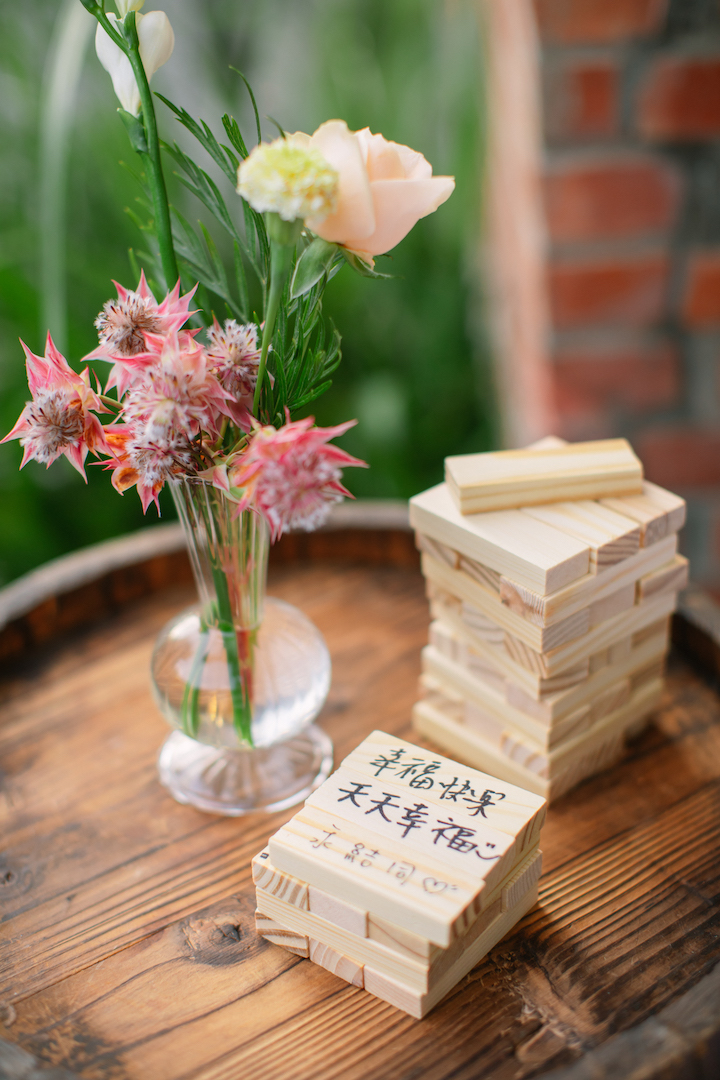 幸福快樂
天天幸福
永結同♡